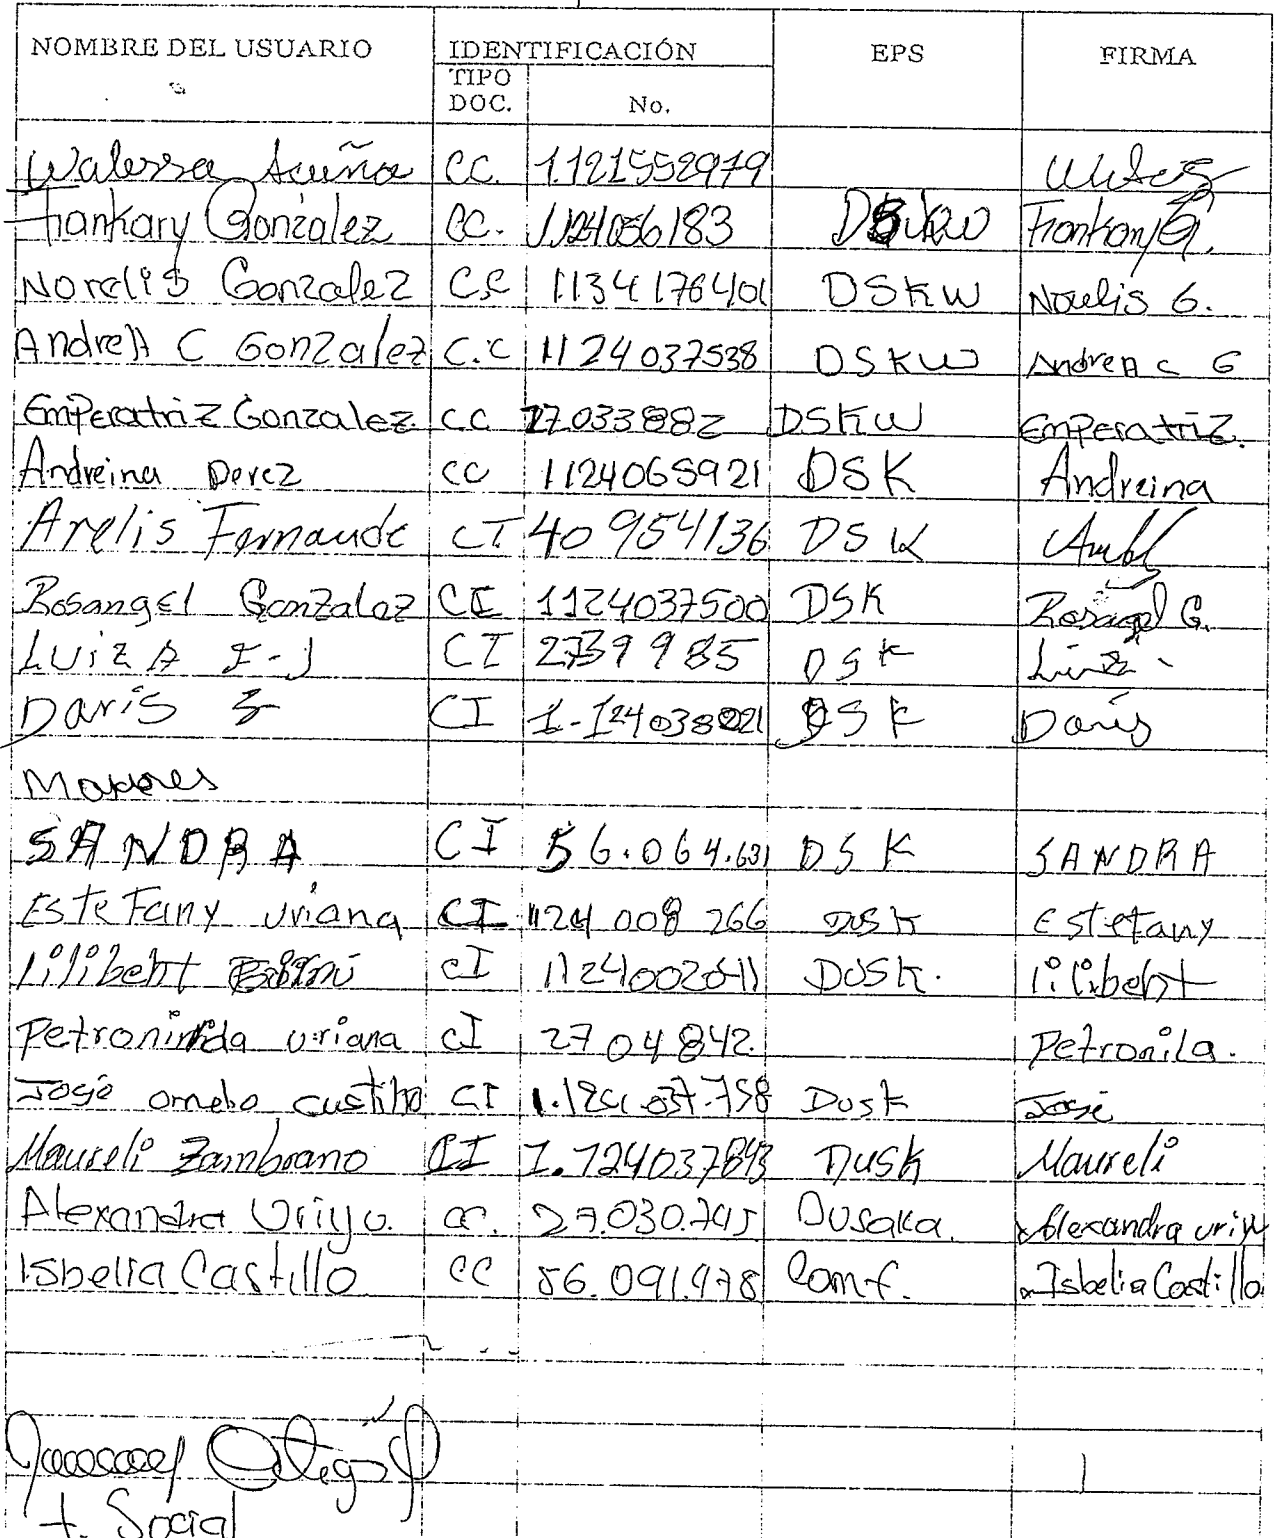 NOMBRE DEL USUARIO IDENTIFICACIÓN EPS FIRMA
TIPO DOC. No.
Walessa Acuña CC. 1121552979
Frankary Gonzalez CC. 1124056183 DSKW Frankary G.
Norelis Gonzalez C.C 1134176401 DSKW Norelis G.
AndreA C Gonzalez C.C 1124037538 DSKW AndreA C G
Emperatriz Gonzalez CC 27.033882 DSKW Emperatriz.
Andreina Perez CC 1124065921 DSK Andreina
Arelis Fernande CI 40954136 DSK
Rosangel Gonzalez CI 1124037500 DSK Rosagel G.
LUiZ A F-J CI 2739985 DSK Luiz
Daris CI 1-124038021 DSK Daris
Mayores
SANDRA CI 56.064.631 DSK SANDRA
Estefany uriana CI 1124 008 266 DUSK Estefany
lilibeht CI 1124002611 DUSK. lilibeht
Petroninda uriana CI 2704842. Petronila.
José custiho CI Dusk José
Maureli Zambrano CI 1.124037843 Dusk Maureli
Alexandra Uriyu. CC. 27.030.745 Dusaka. Alexandra uriyu
Isbelia Castillo CC 56.091.978 Comf. Isbelia Castillo
Ortega
t. Social